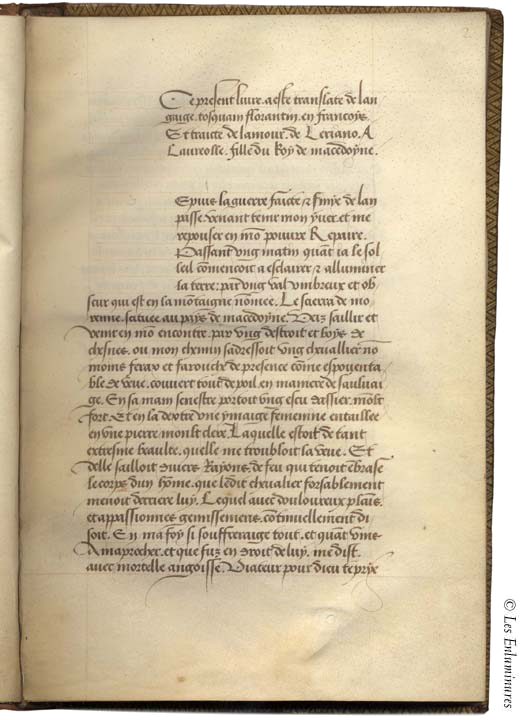 2
Ce present livre. a este translate de lan
gaige. tosquain florantin. en francoys.
Et traicte de lamour. de Leriano. A
Laureolle. fille du Roy de macedoyne.
Epuis la guerre faicte & finye de lan
passe. venant tenir mon yver. et me
repouser en mō pouure Repaire.
Passant vng matin quāt ia le sol
leil cōmencoit a esclairer & alluminer
la terre. par vng val vmbreux et ob
scur qui est en la mōtaigne nōmee. Le sierra de mo
renne. scituee au pays de macedoyne. Veiz saillir et
venir en mō encontre. par vng destroit et boys de
chesnes. ou mon chemin sadressoit vng chevallier nō
moins ferav et farouche de presence cōme espouenta
ble de veue. couvert tout de poil. en maniere de sauluai
ge. En sa main senestre portoit vng escu dassier. moult
fort. Et en la dextre vne ymaige femenine entaillee
en vne pierre. moult clere. Laquelle estoit de tant
extresme beaulte. quelle me troubloit la veue. Et
delle sailloit divers Rayons. de feu qui tenoit ēbrase
le corps dun hōme. que ledit chevalier forsablement
menoit derriere luy. Lequel avec douloureux plains.
et appassionnes gemissemens. cōtinuellement di
soit. En ma foy si souffreraige tout. et quāt vins
A maprocher. et que fuz en droit de luy. me dist.
avec mortelle angoisse. Viateur pour dieu te prye
© Les Enluminures